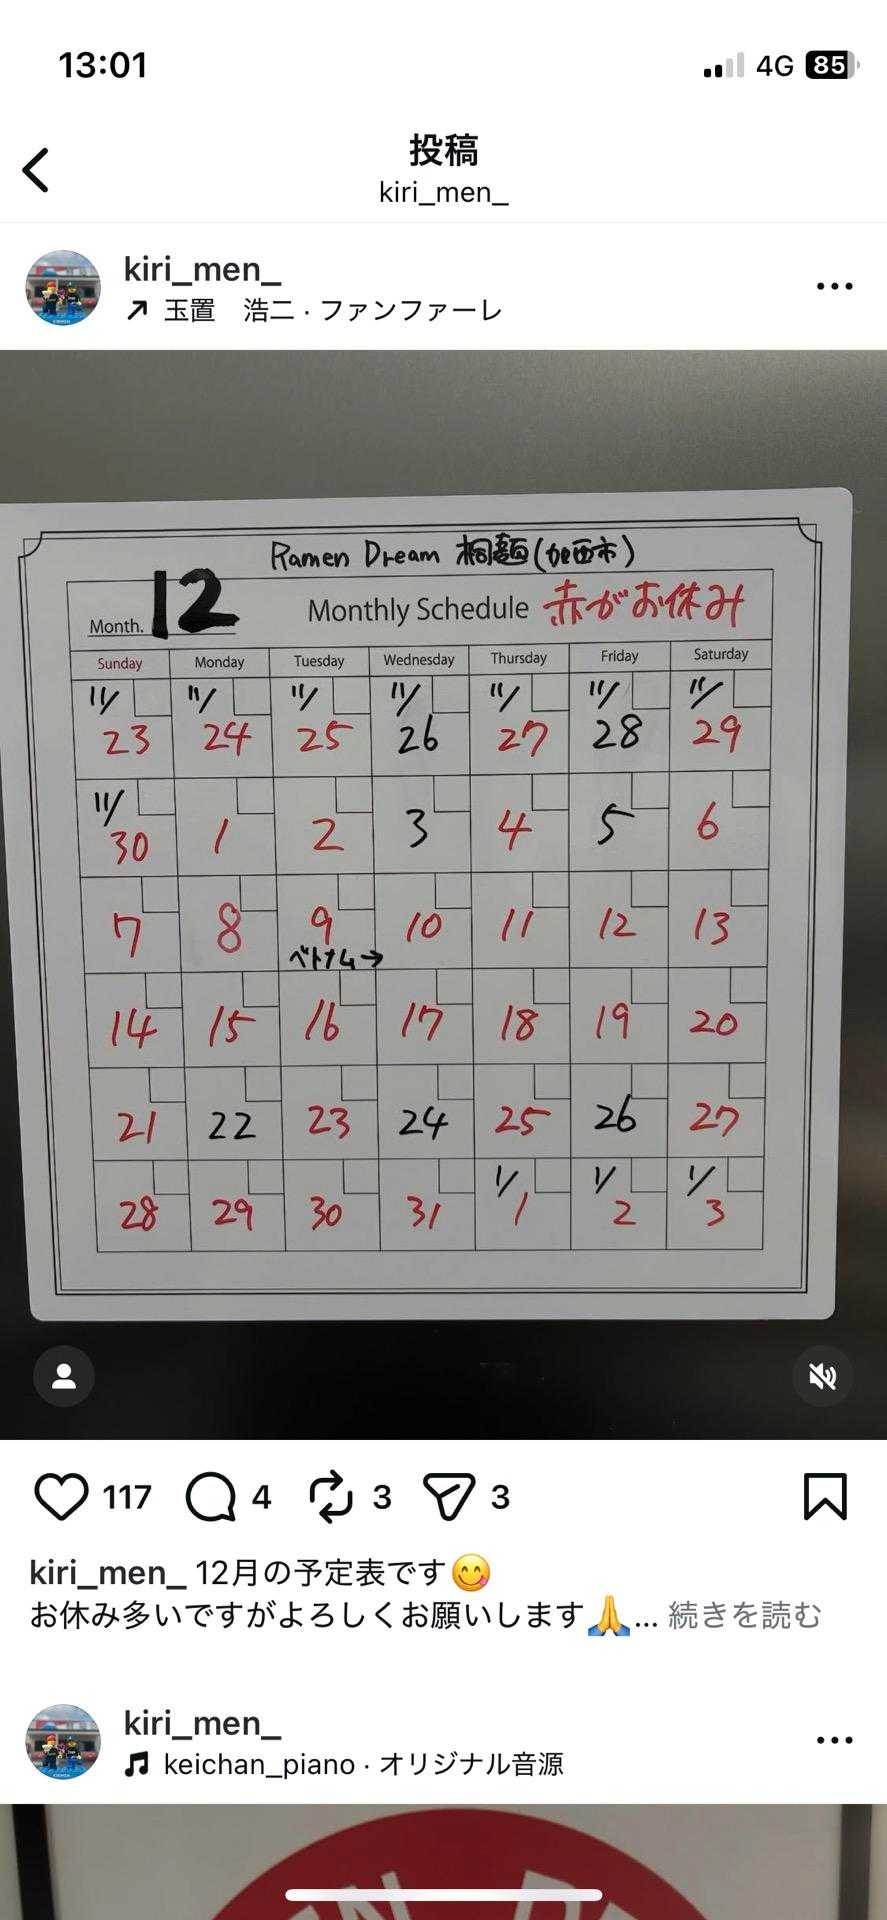 13:01
4G 85
投稿
kiri_men_
kiri_men_
玉置　浩二 · ファンファーレ
Ramen Dream 桐麺(加西市)
Month. 12 Monthly Schedule 赤がお休み
Sunday Monday Tuesday Wednesday Thursday Friday Saturday
11/ 11/ 11/ 11/ 11/ 11/ 11/
23 24 25 26 27 28 29
11/
30 1 2 3 4 5 6
7 8 9 10 11 12 13
ベトナム→
14 15 16 17 18 19 20
21 22 23 24 25 26 27
1/ 1/ 1/
28 29 30 31 1 2 3
117 4 3 3
kiri_men_ 12月の予定表です😋
お休み多いですがよろしくお願いします🙏... 続きを読む
kiri_men_
keichan_piano · オリジナル音源